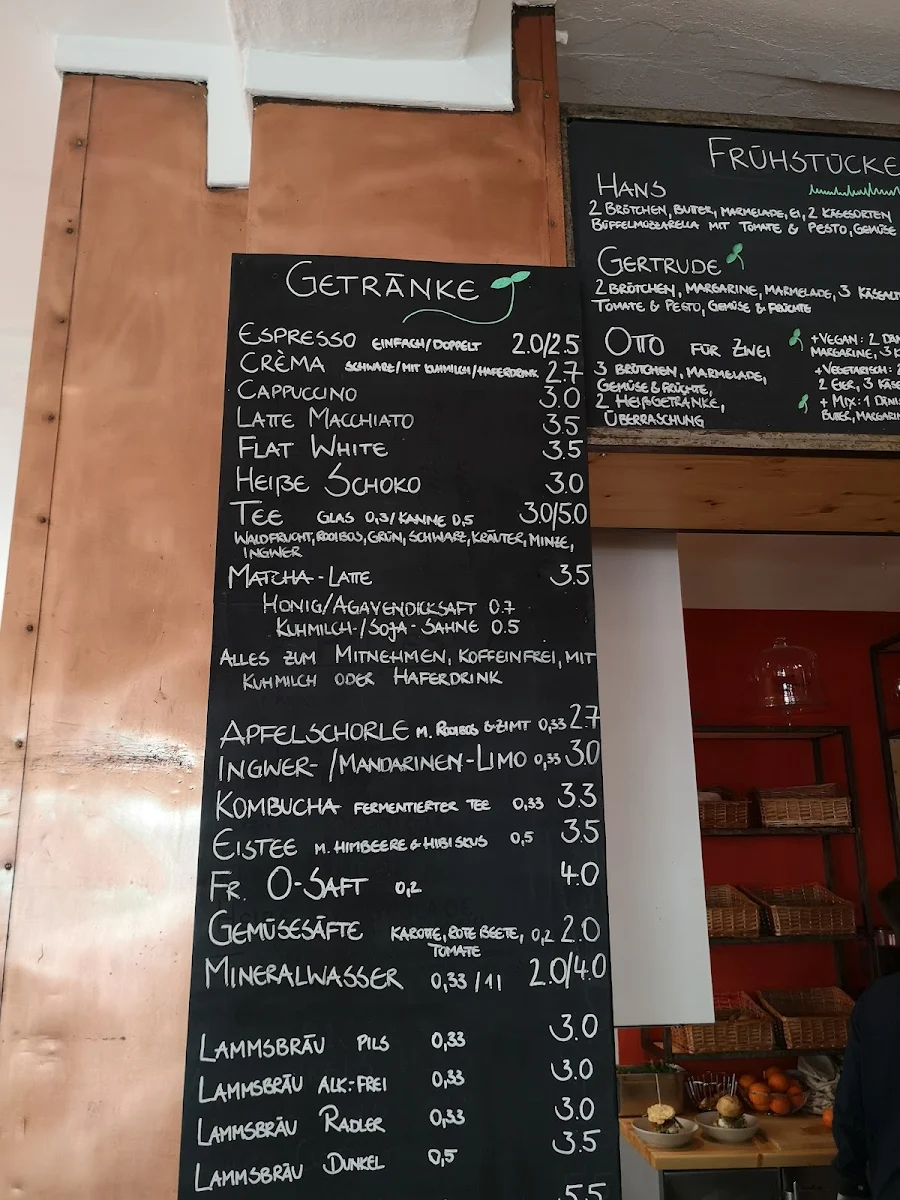 GETRÄNKE
ESPRESSO EINFACH/DOPPELT 2.0/2.5
CRÈMA SCHWARZ/MIT KUHMILCH/HAFERDRINK 2.7
CAPPUCCINO 3.0
LATTE MACCHIATO 3.5
FLAT WHITE 3.5
HEIßE SCHOKO 3.0
TEE GLAS 0,3/KANNE 0,5 3.0/5.0
WALDFRUCHT, ROOIBOS, GRÜN, SCHWARZ, KRÄUTER, MINZE,
INGWER
MATCHA-LATTE 3.5
HONIG/AGAVENDICKSAFT 0.7
KUHMILCH-/SOJA-SAHNE 0.5
ALLES ZUM MITNEHMEN, KOFFEINFREI, MIT
KUHMILCH ODER HAFERDRINK
APFELSCHORLE M. ROOIBOS & ZIMT 0,33 2.7
INGWER- /MANDARINEN-LIMO 0,33 3.0
KOMBUCHA FERMENTIERTER TEE 0,33 3.3
EISTEE M. HIMBEERE & HIBISKUS 0,5 3.5
FR. O-SAFT 0,2 4.0
GEMÜSESÄFTE KAROTTE, ROTE BEETE, 0,2 2.0
TOMATE
MINERALWASSER 0,33 / 1l 2.0/4.0
LAMMSBRÄU PILS 0,33 3.0
LAMMSBRÄU ALK.-FREI 0,33 3.0
LAMMSBRÄU RADLER 0,33 3.0
LAMMSBRÄU DUNKEL 0,5 3.5
5.5
FRÜHSTÜCKE
HANS
2 BRÖTCHEN, BUTTER, MARMELADE, EI, 2 KÄSESORTEN
BÜFFELMOZZARELLA MIT TOMATE & PESTO, GEMÜSE
GERTRUDE
2 BRÖTCHEN, MARGARINE, MARMELADE, 3 KÄSEAL
TOMATE & PESTO, GEMÜSE & FRÜCHTE
OTTO FÜR ZWEI
3 BRÖTCHEN, MARMELADE,
GEMÜSE & FRÜCHTE,
2 HEIßGETRÄNKE,
ÜBERRASCHUNG
+VEGAN: 2 DAN
MARGARINE, 3 K
+VEGETARISCH: 2
2 EIER, 3 KÄSE
+ MIX: 1 DAN
BUTTER, MARGARIN